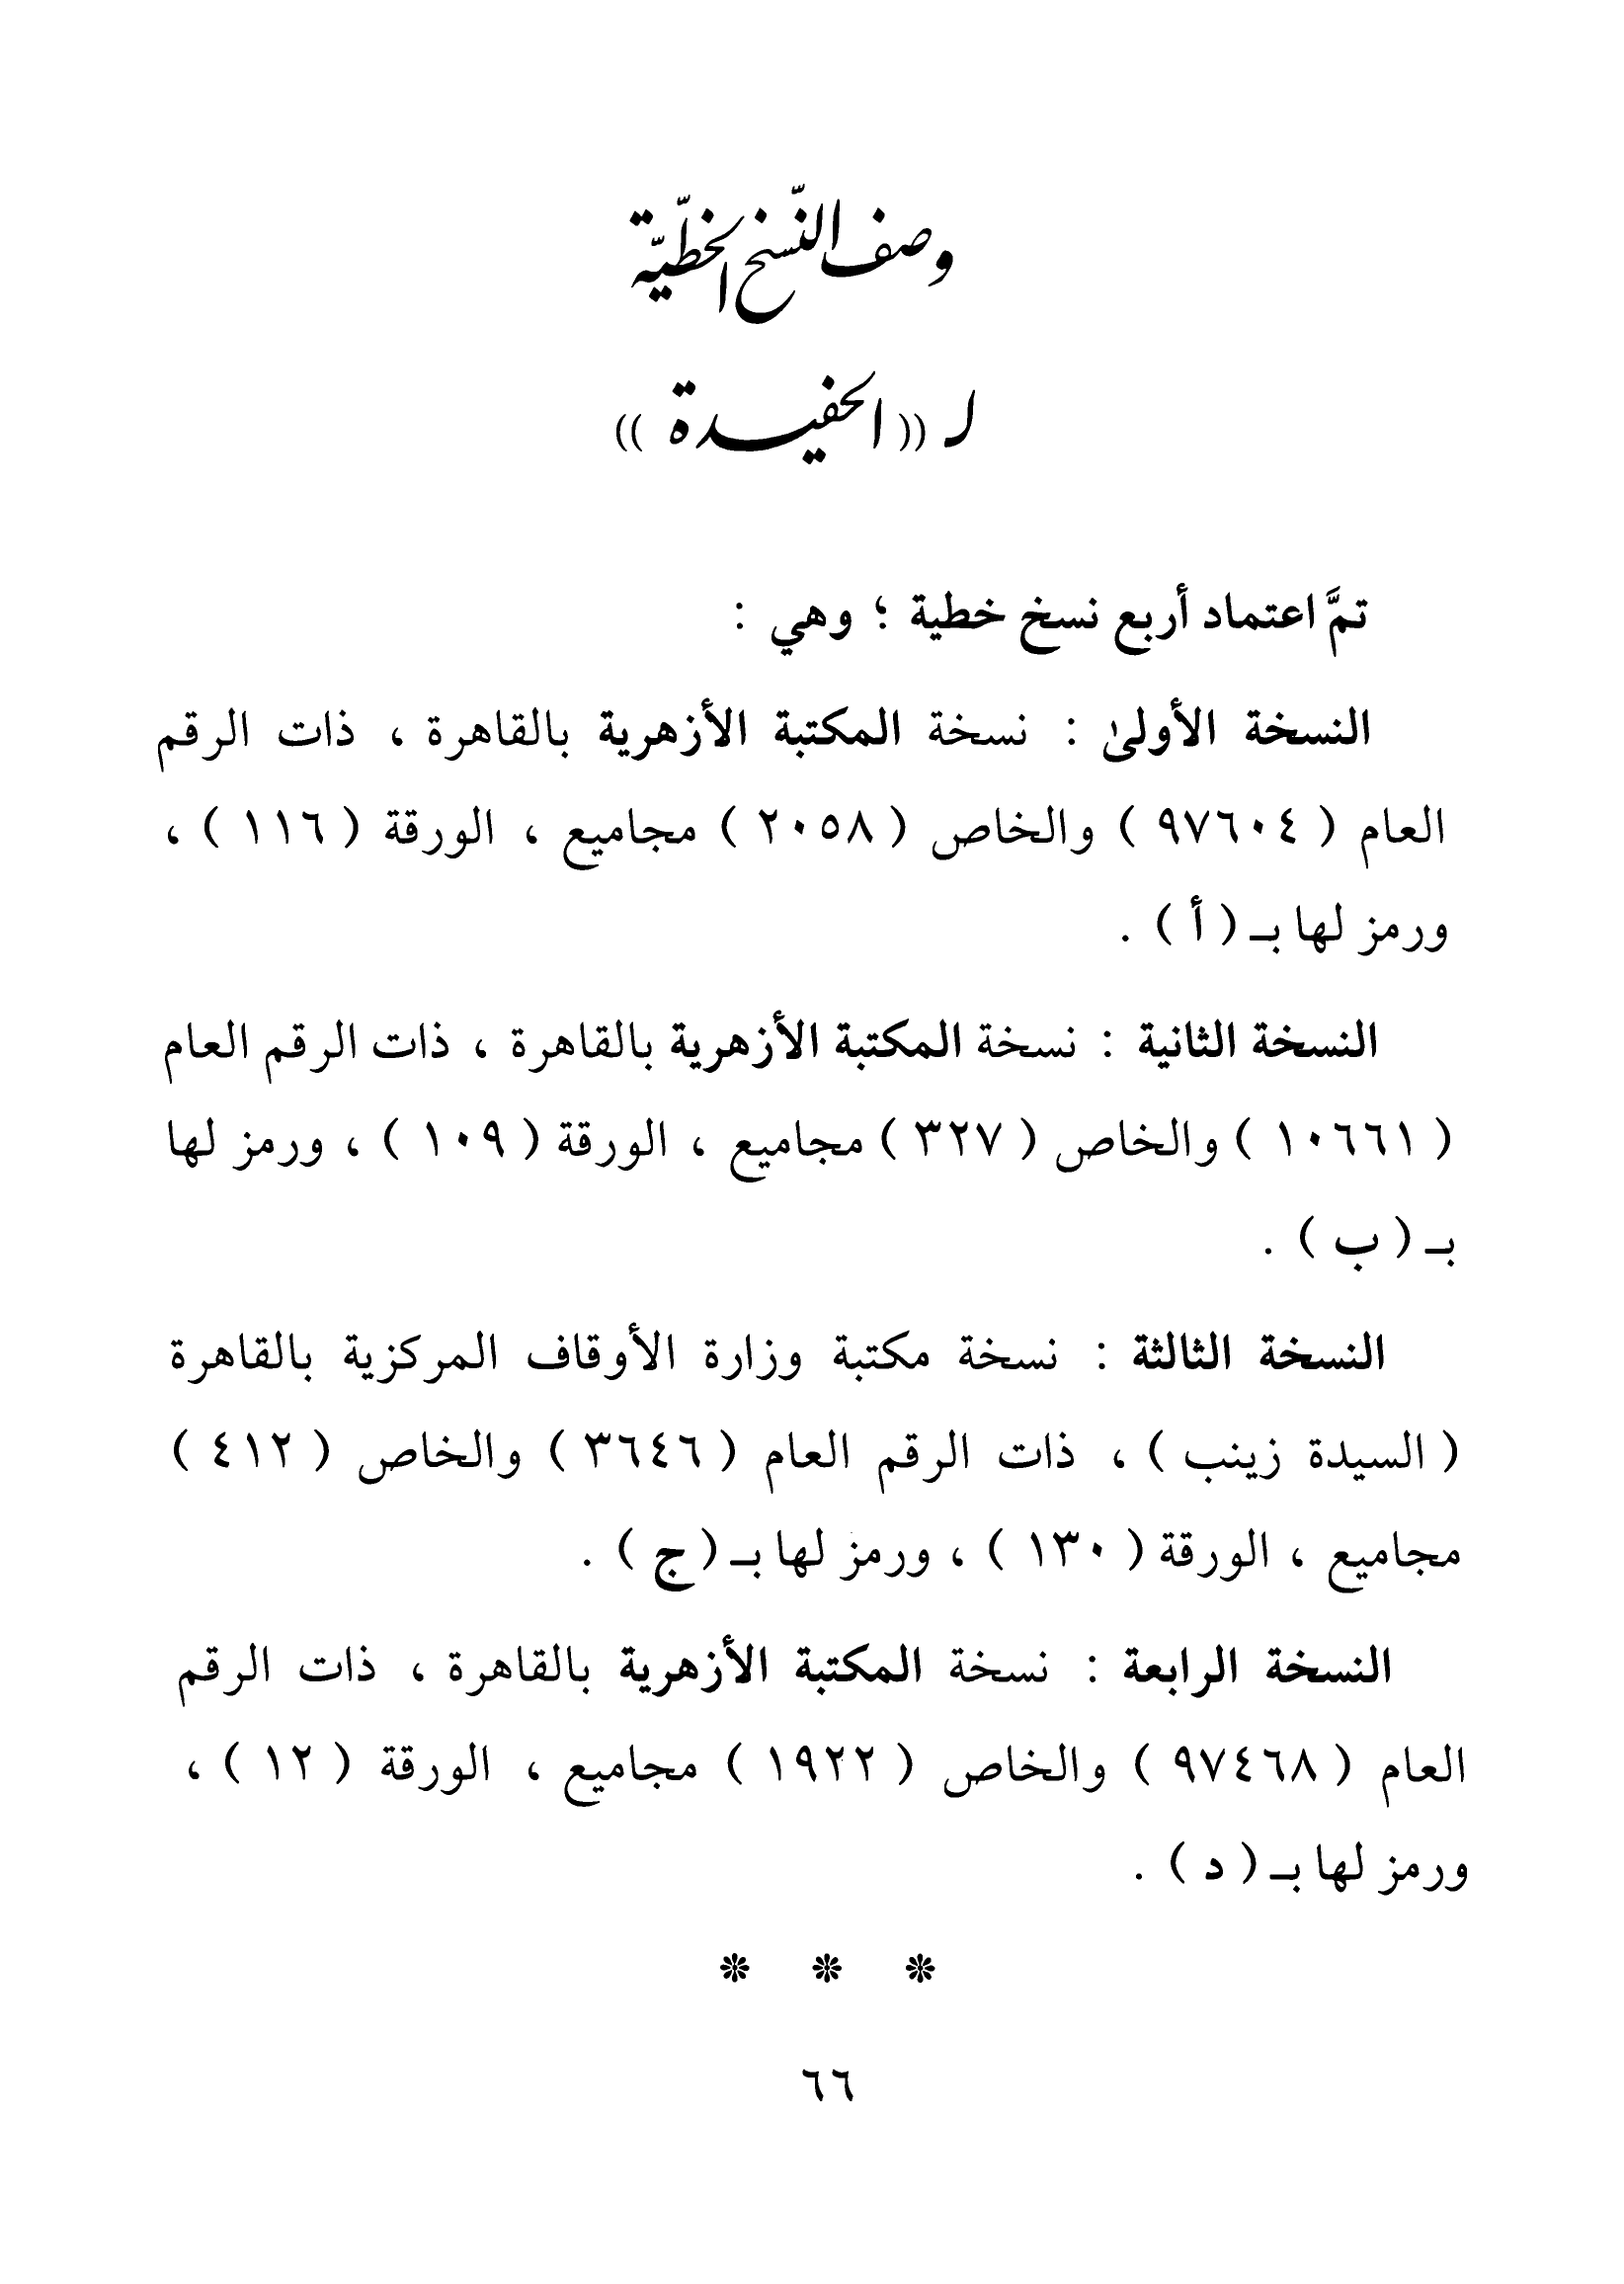 وصف النّسخ الخطّيّة
لـ (( الحفيدة ))
تمَّ اعتماد أربع نسخ خطية ؛ وهي :
النسخة الأولىٰ : نسخة المكتبة الأزهرية بالقاهرة ، ذات الرقم
العام ( ٩٧٦٠٤ ) والخاص ( ٢٠٥٨ ) مجاميع ، الورقة ( ١١٦ ) ،
ورمز لها بـ ( أ ) .
النسخة الثانية : نسخة المكتبة الأزهرية بالقاهرة ، ذات الرقم العام
( ١٠٦٦١ ) والخاص ( ٣٢٧ ) مجاميع ، الورقة ( ١٠٩ ) ، ورمز لها
بـ ( ب ) .
النسخة الثالثة : نسخة مكتبة وزارة الأوقاف المركزية بالقاهرة
( السيدة زينب ) ، ذات الرقم العام ( ٣٦٤٦ ) والخاص ( ٤١٢ )
مجاميع ، الورقة ( ١٣٠ ) ، ورمز لها بـ ( ج ) .
النسخة الرابعة : نسخة المكتبة الأزهرية بالقاهرة ، ذات الرقم
العام ( ٩٧٤٦٨ ) والخاص ( ١٩٢٢ ) مجاميع ، الورقة ( ١٢ ) ،
ورمز لها بـ ( د ) .
* * *
٦٦